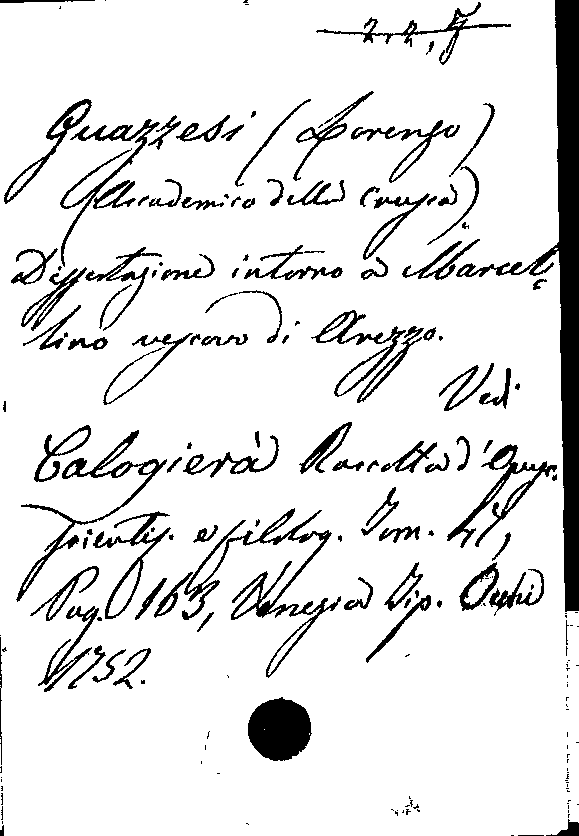 2, 2, 7
Guazzesi (Lorenzo)
(Accademico della Crusca)
Dissertazione intorno a Marcel-
lino vescovo di Arezzo.
Vedi
Calogierà Raccolta d'Opusc.
scientif. e filolog. Tom. 47,
Pag. 163, Venezia Tip. Occhi
1752.